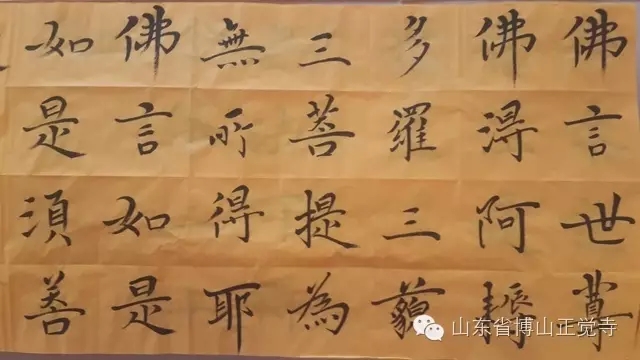 佛言世尊
佛得阿耨
多羅三藐
三菩提為
無所得耶
佛言如是
如是須善
山东省博山正觉寺